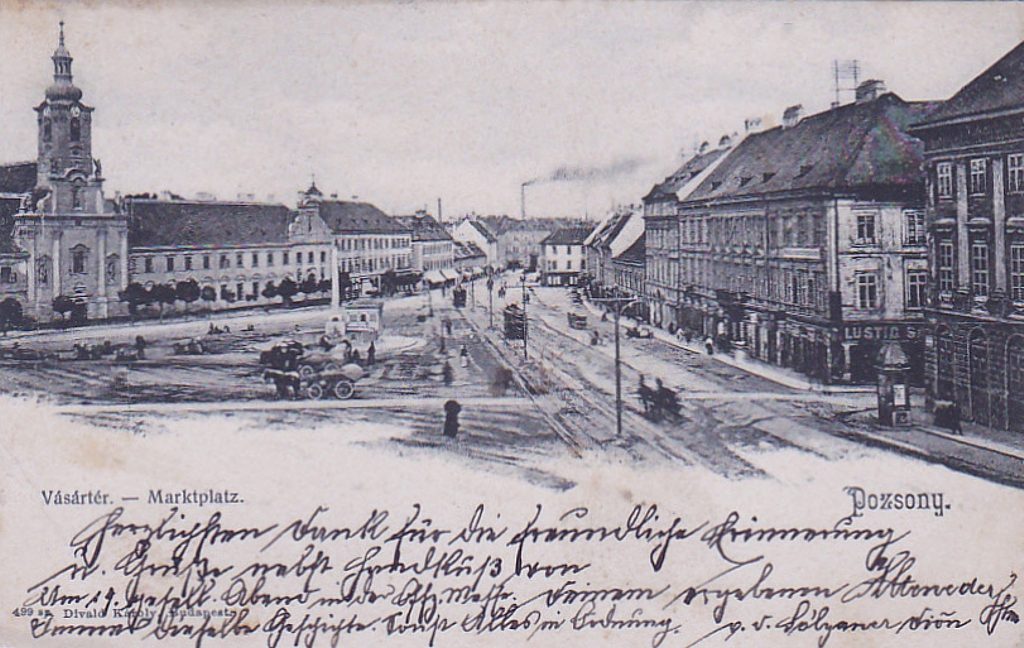 LUSTIG S
Vásártér. — Marktplatz.
Pozsony.
Herzlichsten Dank für die freundliche Erinnerung
u. Grüße nebst Handkuß von
Am 19. gesell. Abend in der Off. Messe. Deinem ergebenen
499 sz. Divald Károly, Budapest.
Immer dieselbe Geschichte. Sonst Alles in Ordnung. v. d.